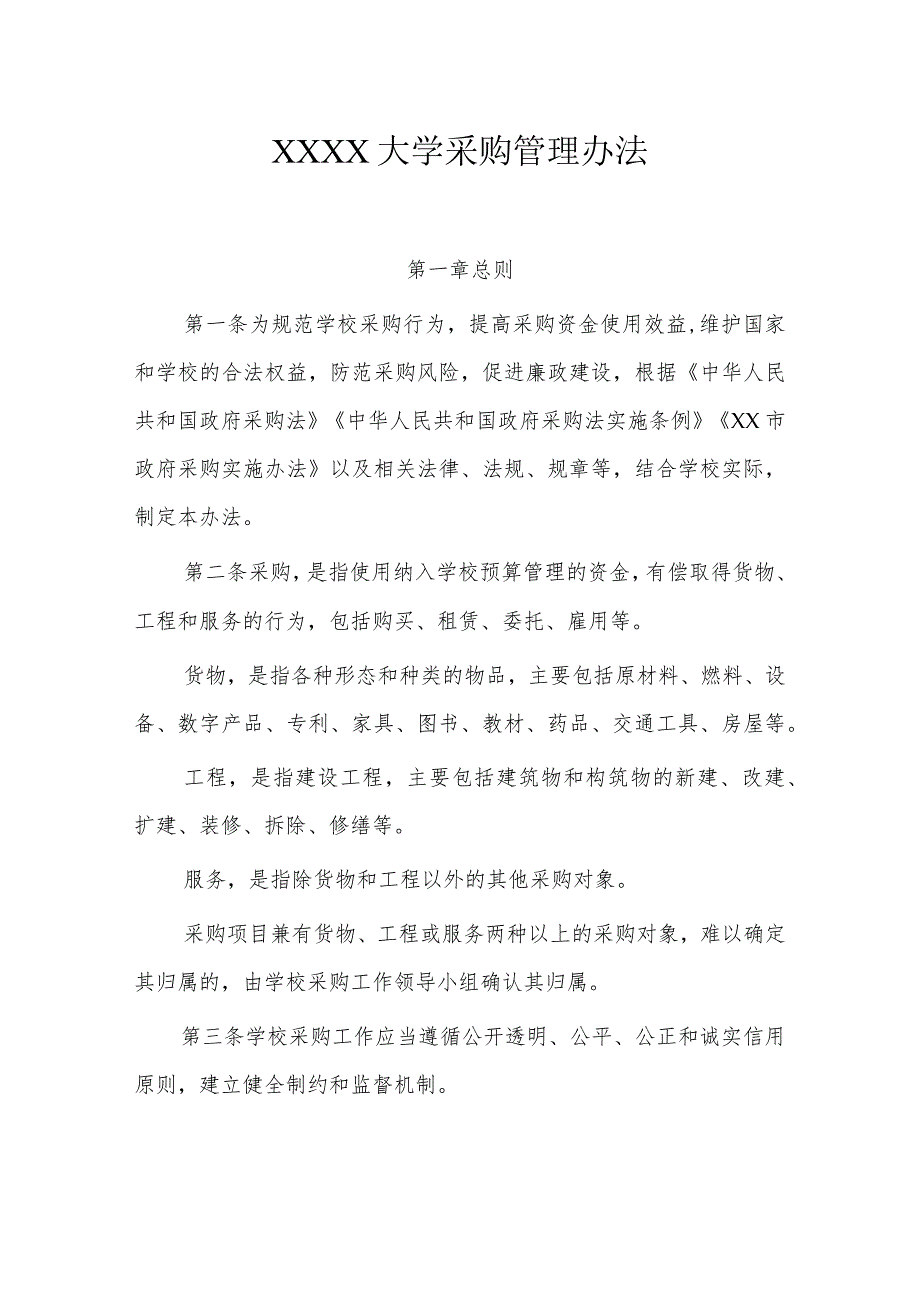 XXXX大学采购管理办法
第一章总则
第一条为规范学校采购行为，提高采购资金使用效益,维护国家
和学校的合法权益，防范采购风险，促进廉政建设，根据《中华人民
共和国政府采购法》《中华人民共和国政府采购法实施条例》《XX市
政府采购实施办法》以及相关法律、法规、规章等，结合学校实际，
制定本办法。
第二条采购，是指使用纳入学校预算管理的资金，有偿取得货物、
工程和服务的行为，包括购买、租赁、委托、雇用等。
货物，是指各种形态和种类的物品，主要包括原材料、燃料、设
备、数字产品、专利、家具、图书、教材、药品、交通工具、房屋等。
工程，是指建设工程，主要包括建筑物和构筑物的新建、改建、
扩建、装修、拆除、修缮等。
服务，是指除货物和工程以外的其他采购对象。
采购项目兼有货物、工程或服务两种以上的采购对象，难以确定
其归属的，由学校采购工作领导小组确认其归属。
第三条学校采购工作应当遵循公开透明、公平、公正和诚实信用
原则，建立健全制约和监督机制。